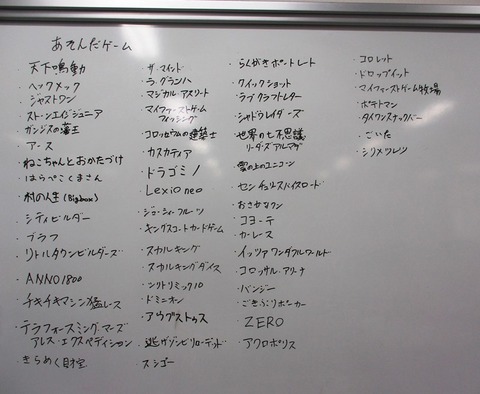 あそんだゲーム
・天下鳴動
・ヘックメック
・ジャストワン
・ストーンエイジジュニア
・ガンジスの藩王
・アース
・ねこちゃんとおかたづけ
・はらぺこくまさん
・村の人生 (Bigbox)
・シティビルダー
・ブラフ
・リトルタウンビルダーズ
・ANNO1800
・チキチキマシン猛レース
・テラフォーミングマーズ
アレス・エクスペディション
・きらめく財宝
・ザ・マインド
・ラ・グランハ
・マジカル・アスリート
・マイファーストゲーム
フィッシング
・コロッセウムの建築士
・カスカディア
・ドラゴミノ
・Lexio neo
・ジョ・シィ・フルーツ
・キングスコートカードゲーム
・スカルキング
・スカルキングダイス
・ニムトリミック10
・ドミニオン
・アウグストゥス
・逃げゾンビリローデッド
・スシゴー
・らくがきポートレート
・クイックショット
・ラブクラフトレター
・シャドウレイダーズ
・世界の七不思議
リーダーズアルマダ
・雲の上のユニコーン
・センチュリースパイスロード
・おさかなワン
・コヨーテ
・カーレース
・イッツァワンダフルワールド
・コロッサル・アリーナ
・バンジー
・ごきぶりポーカー
・ZERO
・アクロポリス
・コロレット
・ドロップイット
・マイファーストゲーム牧場
・ポテトマン
・タイワンスナックバー
・ごいた
・シリメツレツ